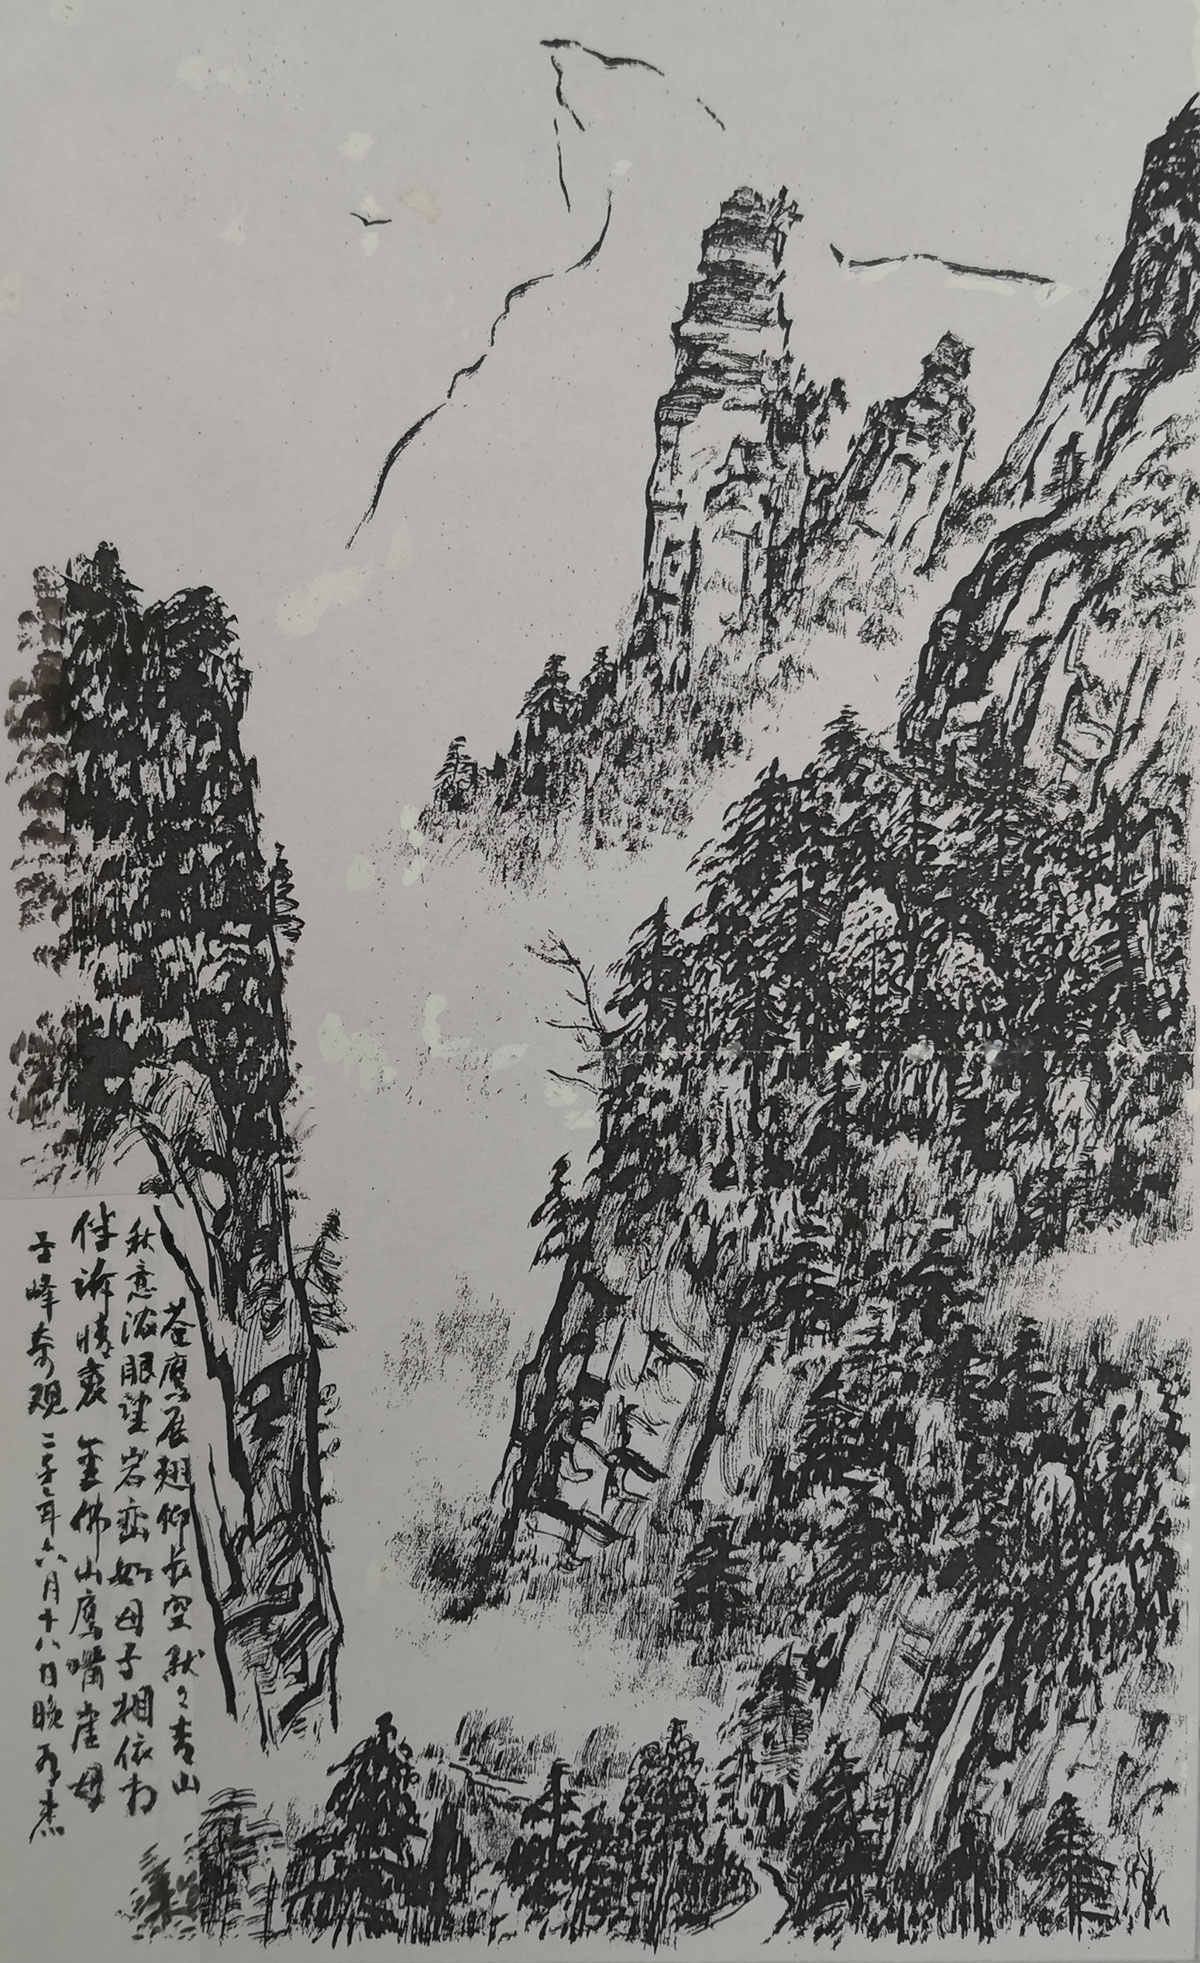 苍鹰展翅仰长空默々青山
秋意浓眼望岩峦如母子相依为
伴诉情衷 金佛山鹰嘴崖母
子峰奇观 二〇一七年六月十八日晚